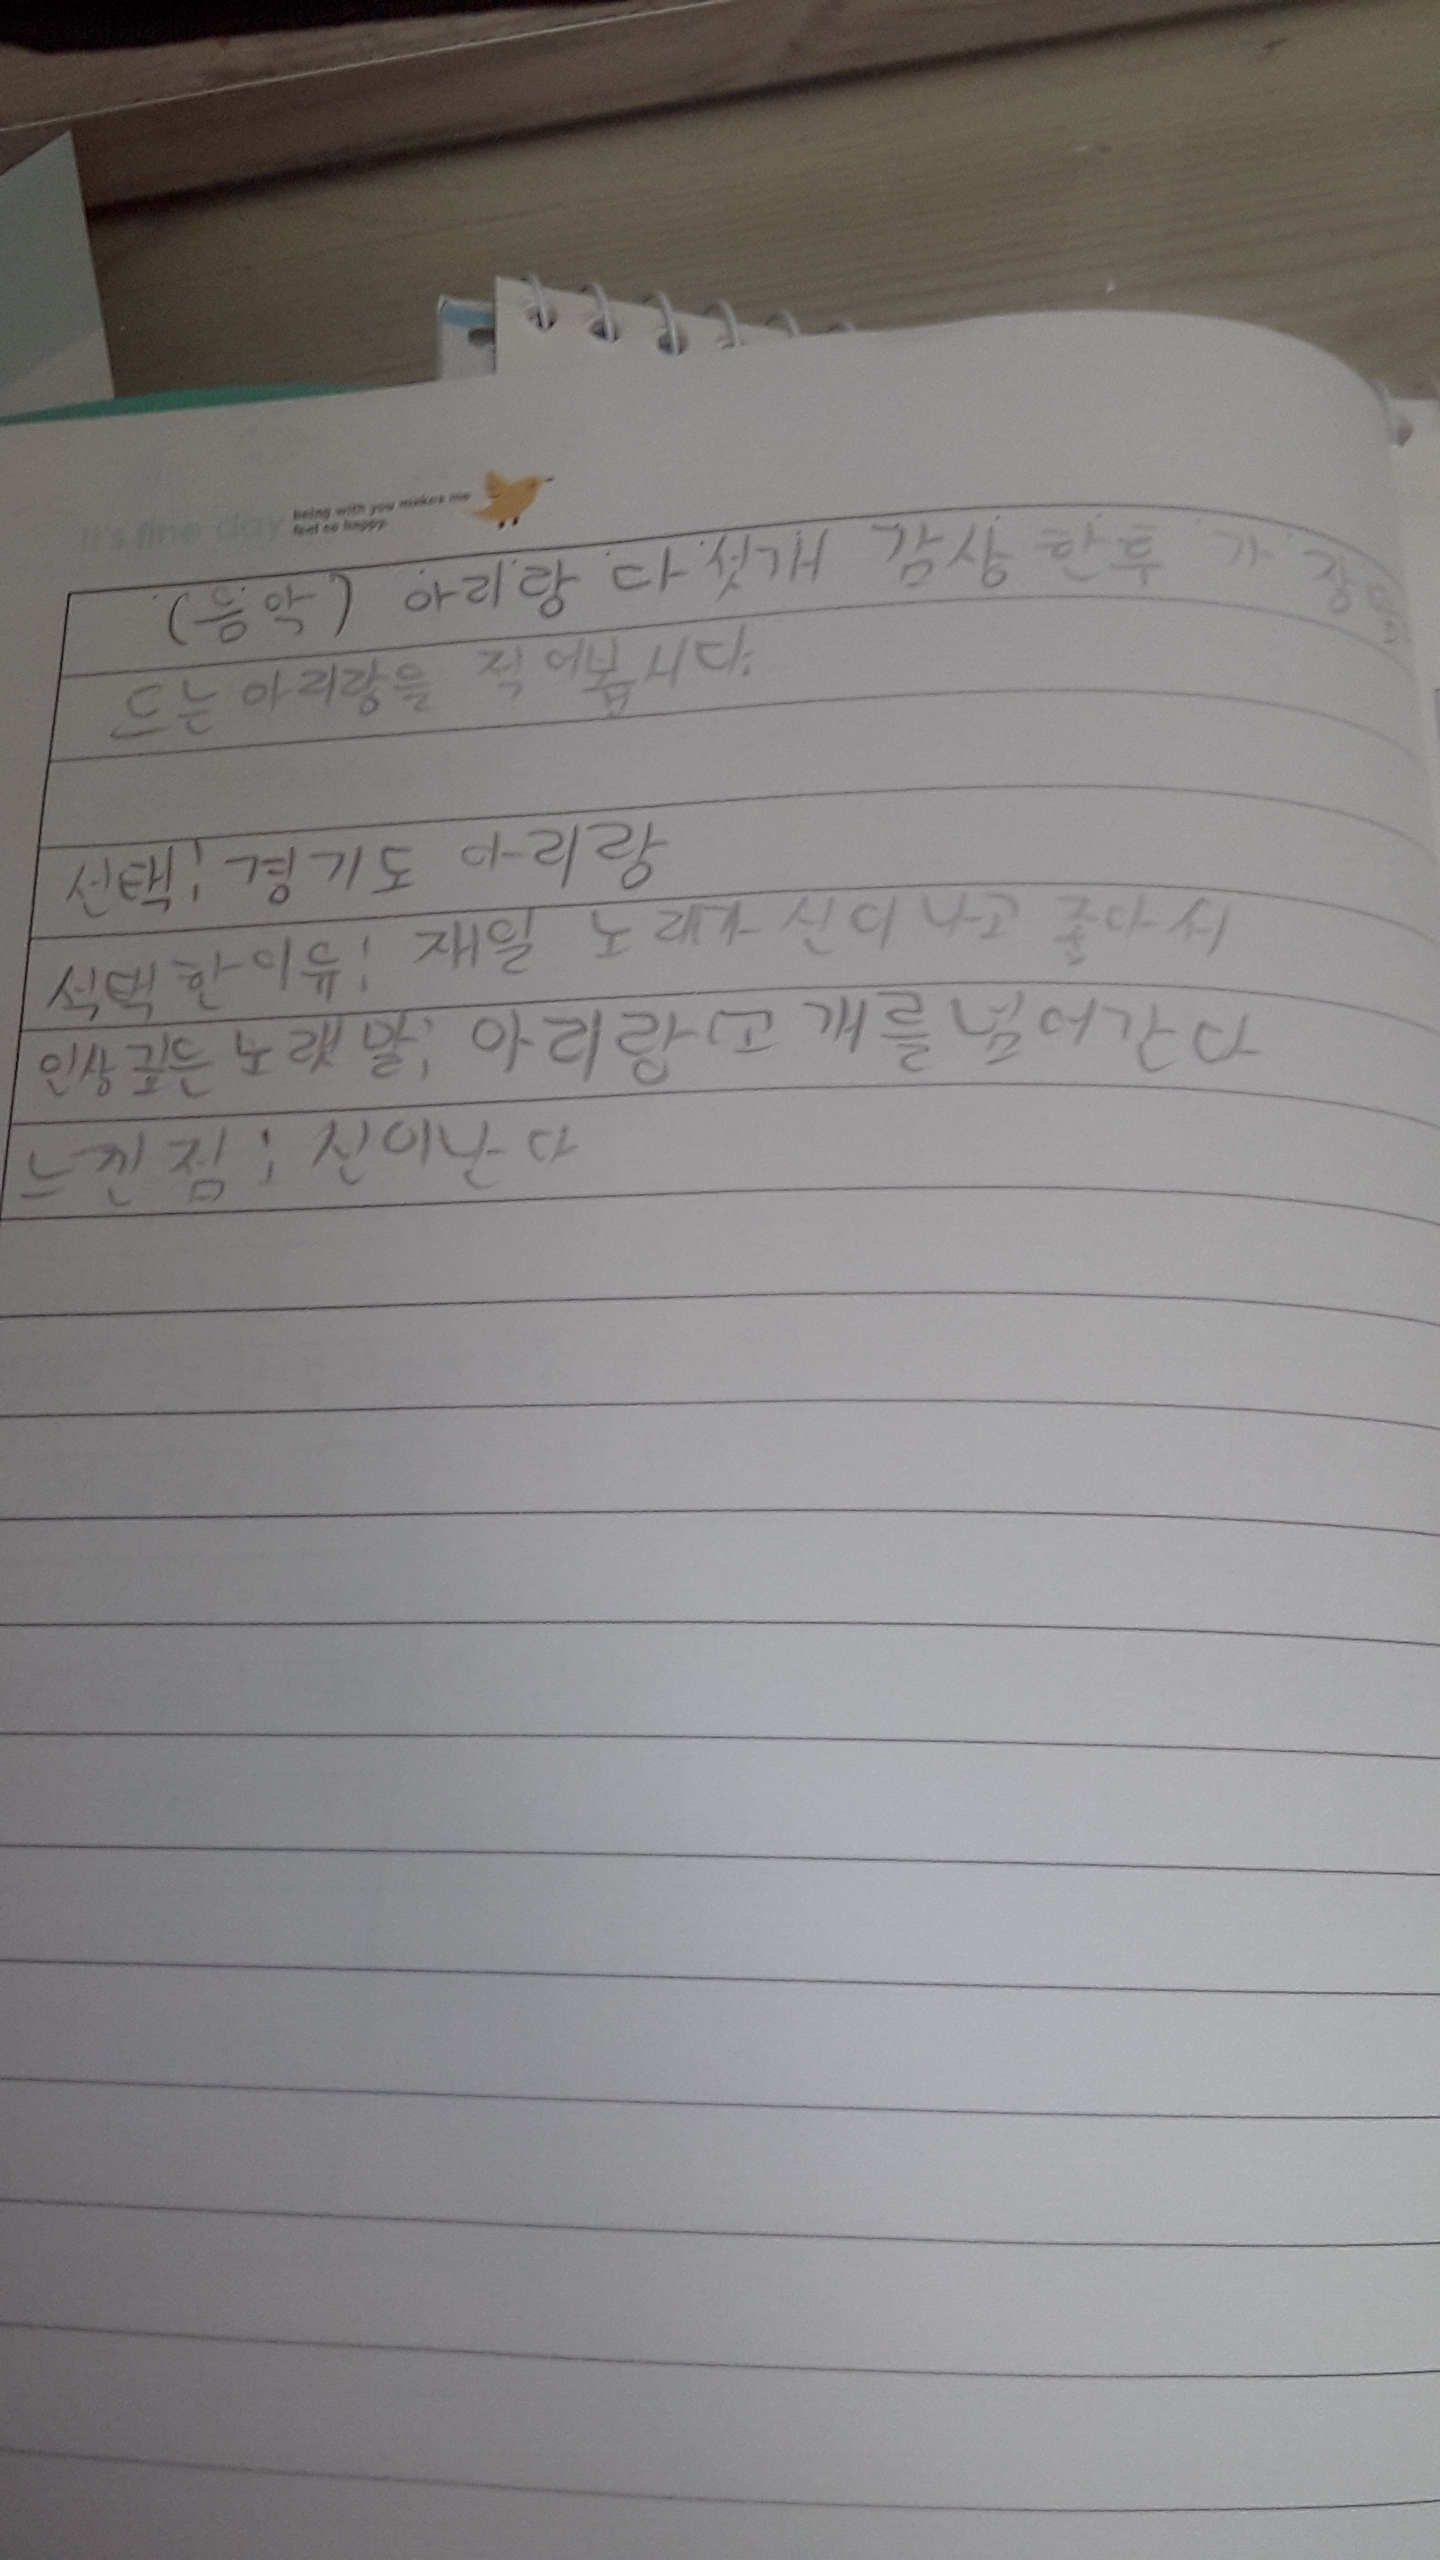 It's fine day being with you makes me
feel so happy.
(음악) 아리랑 다섯개 감상 한후 가장
드는 아리랑을 적어봅시다.
선택; 경기도 아리랑
석택한이유; 재일 노래가 신이나고 좋아서
인상깊은 노랫말; 아리랑고개를넘어간다
느낀점; 신이난다